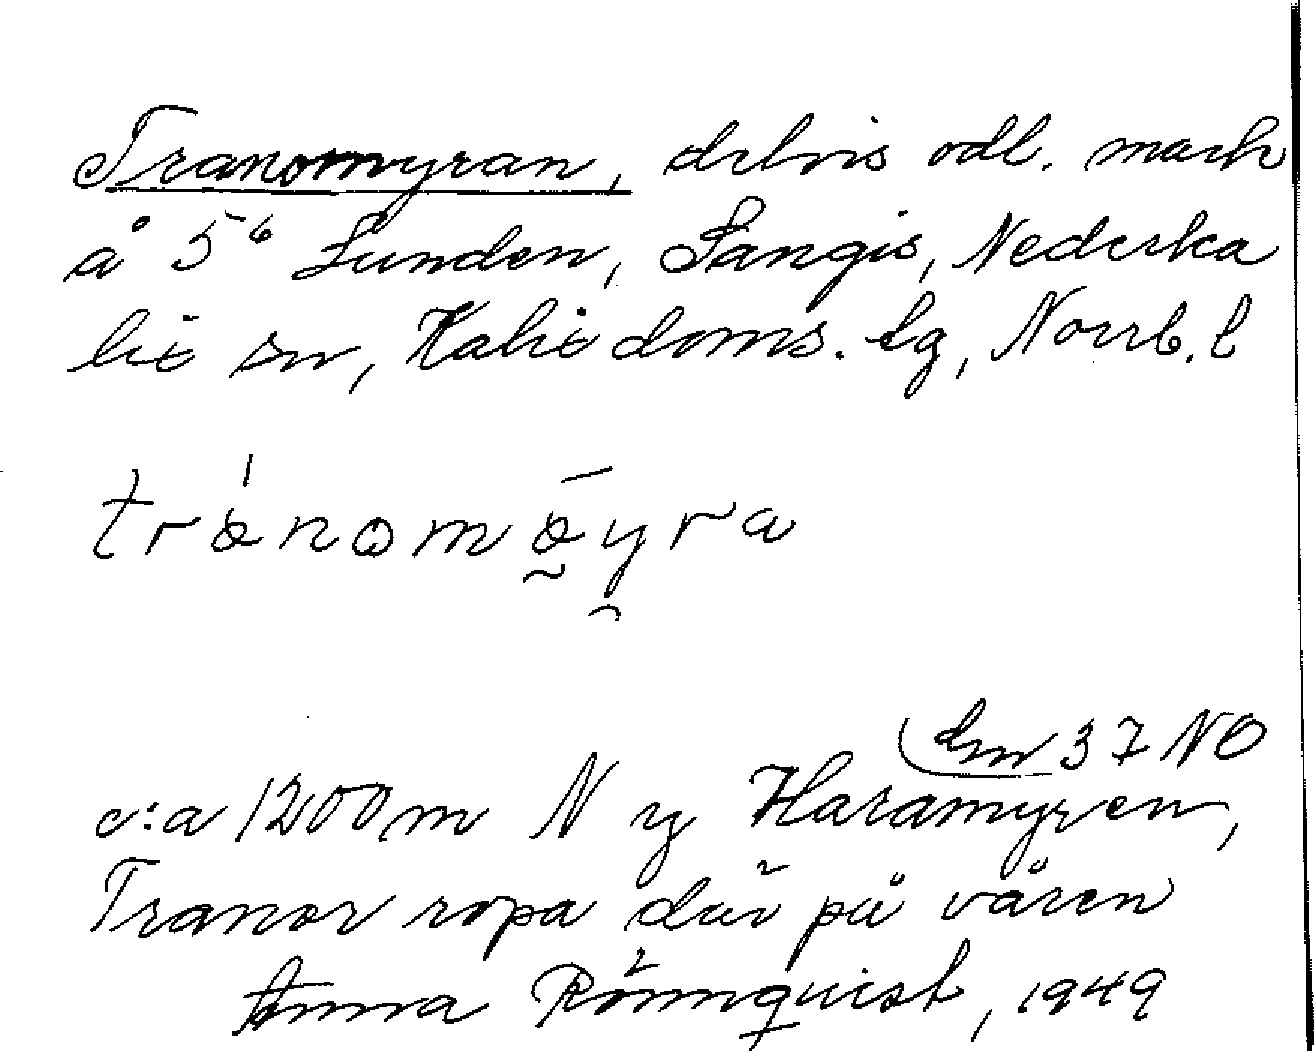 Tranomyran, delvis odl. mark
å 5⁶ Lunden, Sangis, Nederka
lix sn, Kalix doms. lg, Norrb. l
trånomåyra
Em 37 NO
c:a 1200 m N y Haramyren,
Tranor ropa där på våren
Anna Rönnquist, 1949